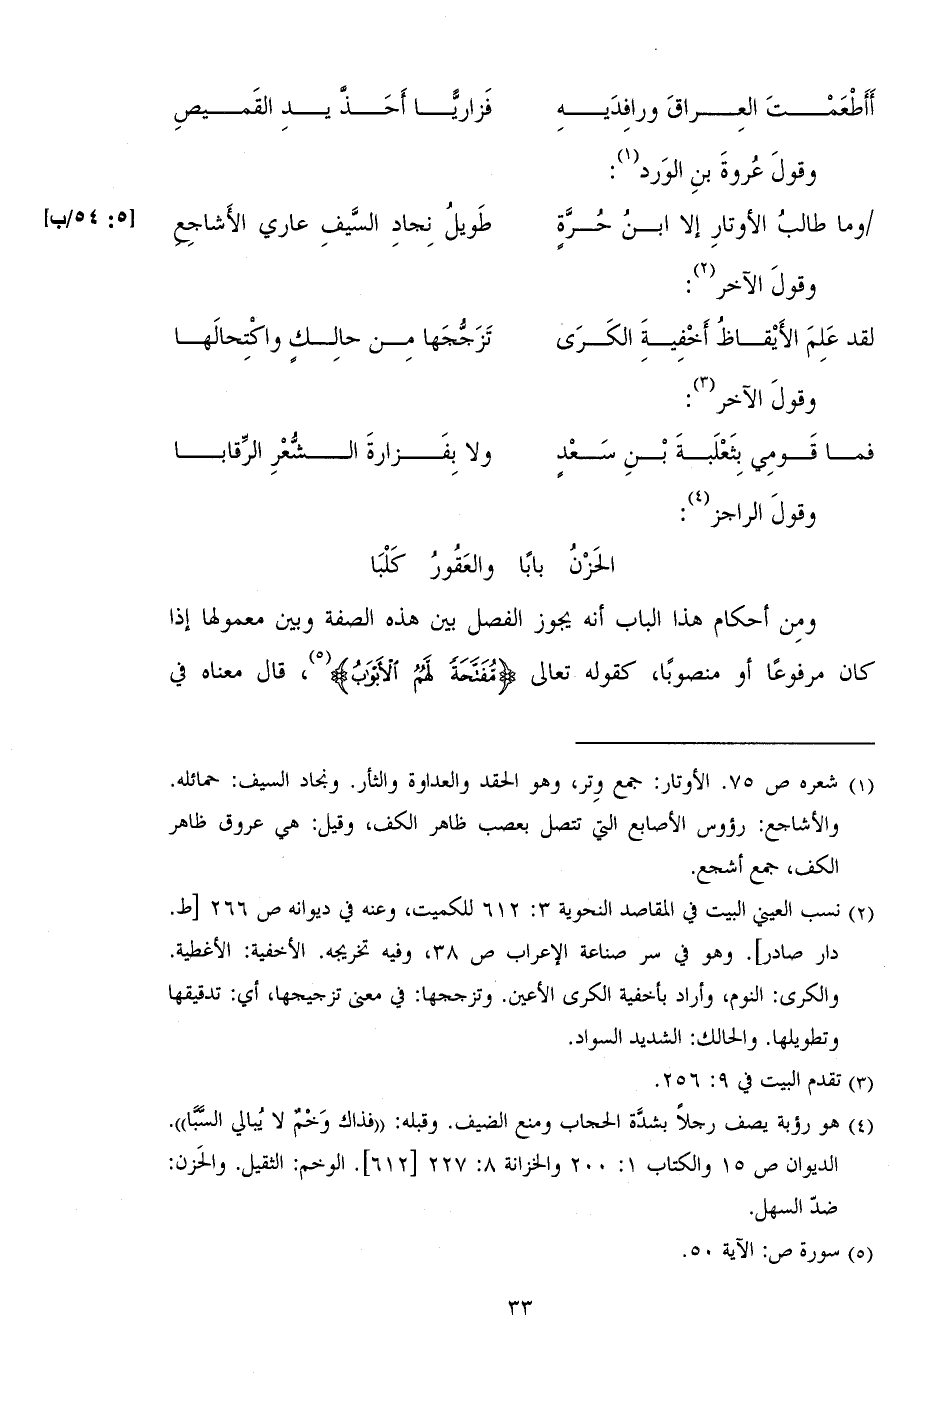 أَأَطْعَمْتَ العِراقَ ورافِدَيهِ فَزاريًّا أَحَذَّ يدِ القَميصِ
وقولَ عُروةَ بنِ الوَرد(١):
/وما طالبُ الأوتارِ إلا ابنُ حُرَّةٍ طَويلُ نِجادِ السَّيفِ عاري الأَشاجِعِ [٥: ٥٤/ب]
وقولَ الآخر(٢):
لقد عَلِمَ الأَيْقاظُ أَخْفِيةَ الكَرَى تَزَجُّجَها مِن حالِكٍ واكْتِحالَها
وقولَ الآخر(٣):
فما قَومِي بِثَعْلَبةَ بْنِ سَعْدٍ ولا بِفَزارةَ الشُّعْرِ الرِّقابا
وقولَ الراجز(٤):
الحَزْنُ بابًا والعَقُورُ كَلْبَا
ومِن أحكام هذا الباب أنه يجوز الفصل بين هذه الصفة وبين معمولها إذا
كان مرفوعًا أو منصوبًا، كقوله تعالى ﴿مُّفَتَّحَةً لَّهُمُ ٱلْأَبْوَٰبُ﴾(٥)، قال معناه في
(١) شعره ص ٧٥. الأوتار: جمع وِتر، وهو الحقد والعداوة والثأر. ونجاد السيف: حمائله.
والأشاجع: رؤوس الأصابع التي تتصل بعصب ظاهر الكف، وقيل: هي عروق ظاهر
الكف، جمع أشجع.
(٢) نسب العيني البيت في المقاصد النحوية ٣: ٦١٢ للكميت، وعنه في ديوانه ص ٢٦٦ [ط.
دار صادر]. وهو في سر صناعة الإعراب ص ٣٨، وفيه تخريجه. الأخفية: الأغطية.
والكرى: النوم، وأراد بأخفية الكرى الأعين. وتزججها: في معنى تزجيجها، أي: تدقيقها
وتطويلها. والحالك: الشديد السواد.
(٣) تقدم البيت في ٩: ٢٥٦.
(٤) هو رؤبة يصف رجلاً بشدَّة الحجاب ومنع الضيف. وقبله: ((فذاك وَخْمٌ لا يُبالي السَّبَّا)).
الديوان ص ١٥ والكتاب ١: ٢٠٠ والخزانة ٨: ٢٢٧ [٦١٢]. الوخم: الثقيل. والحَزن:
ضدّ السهل.
(٥) سورة ص: الآية ٥٠.
٣٣